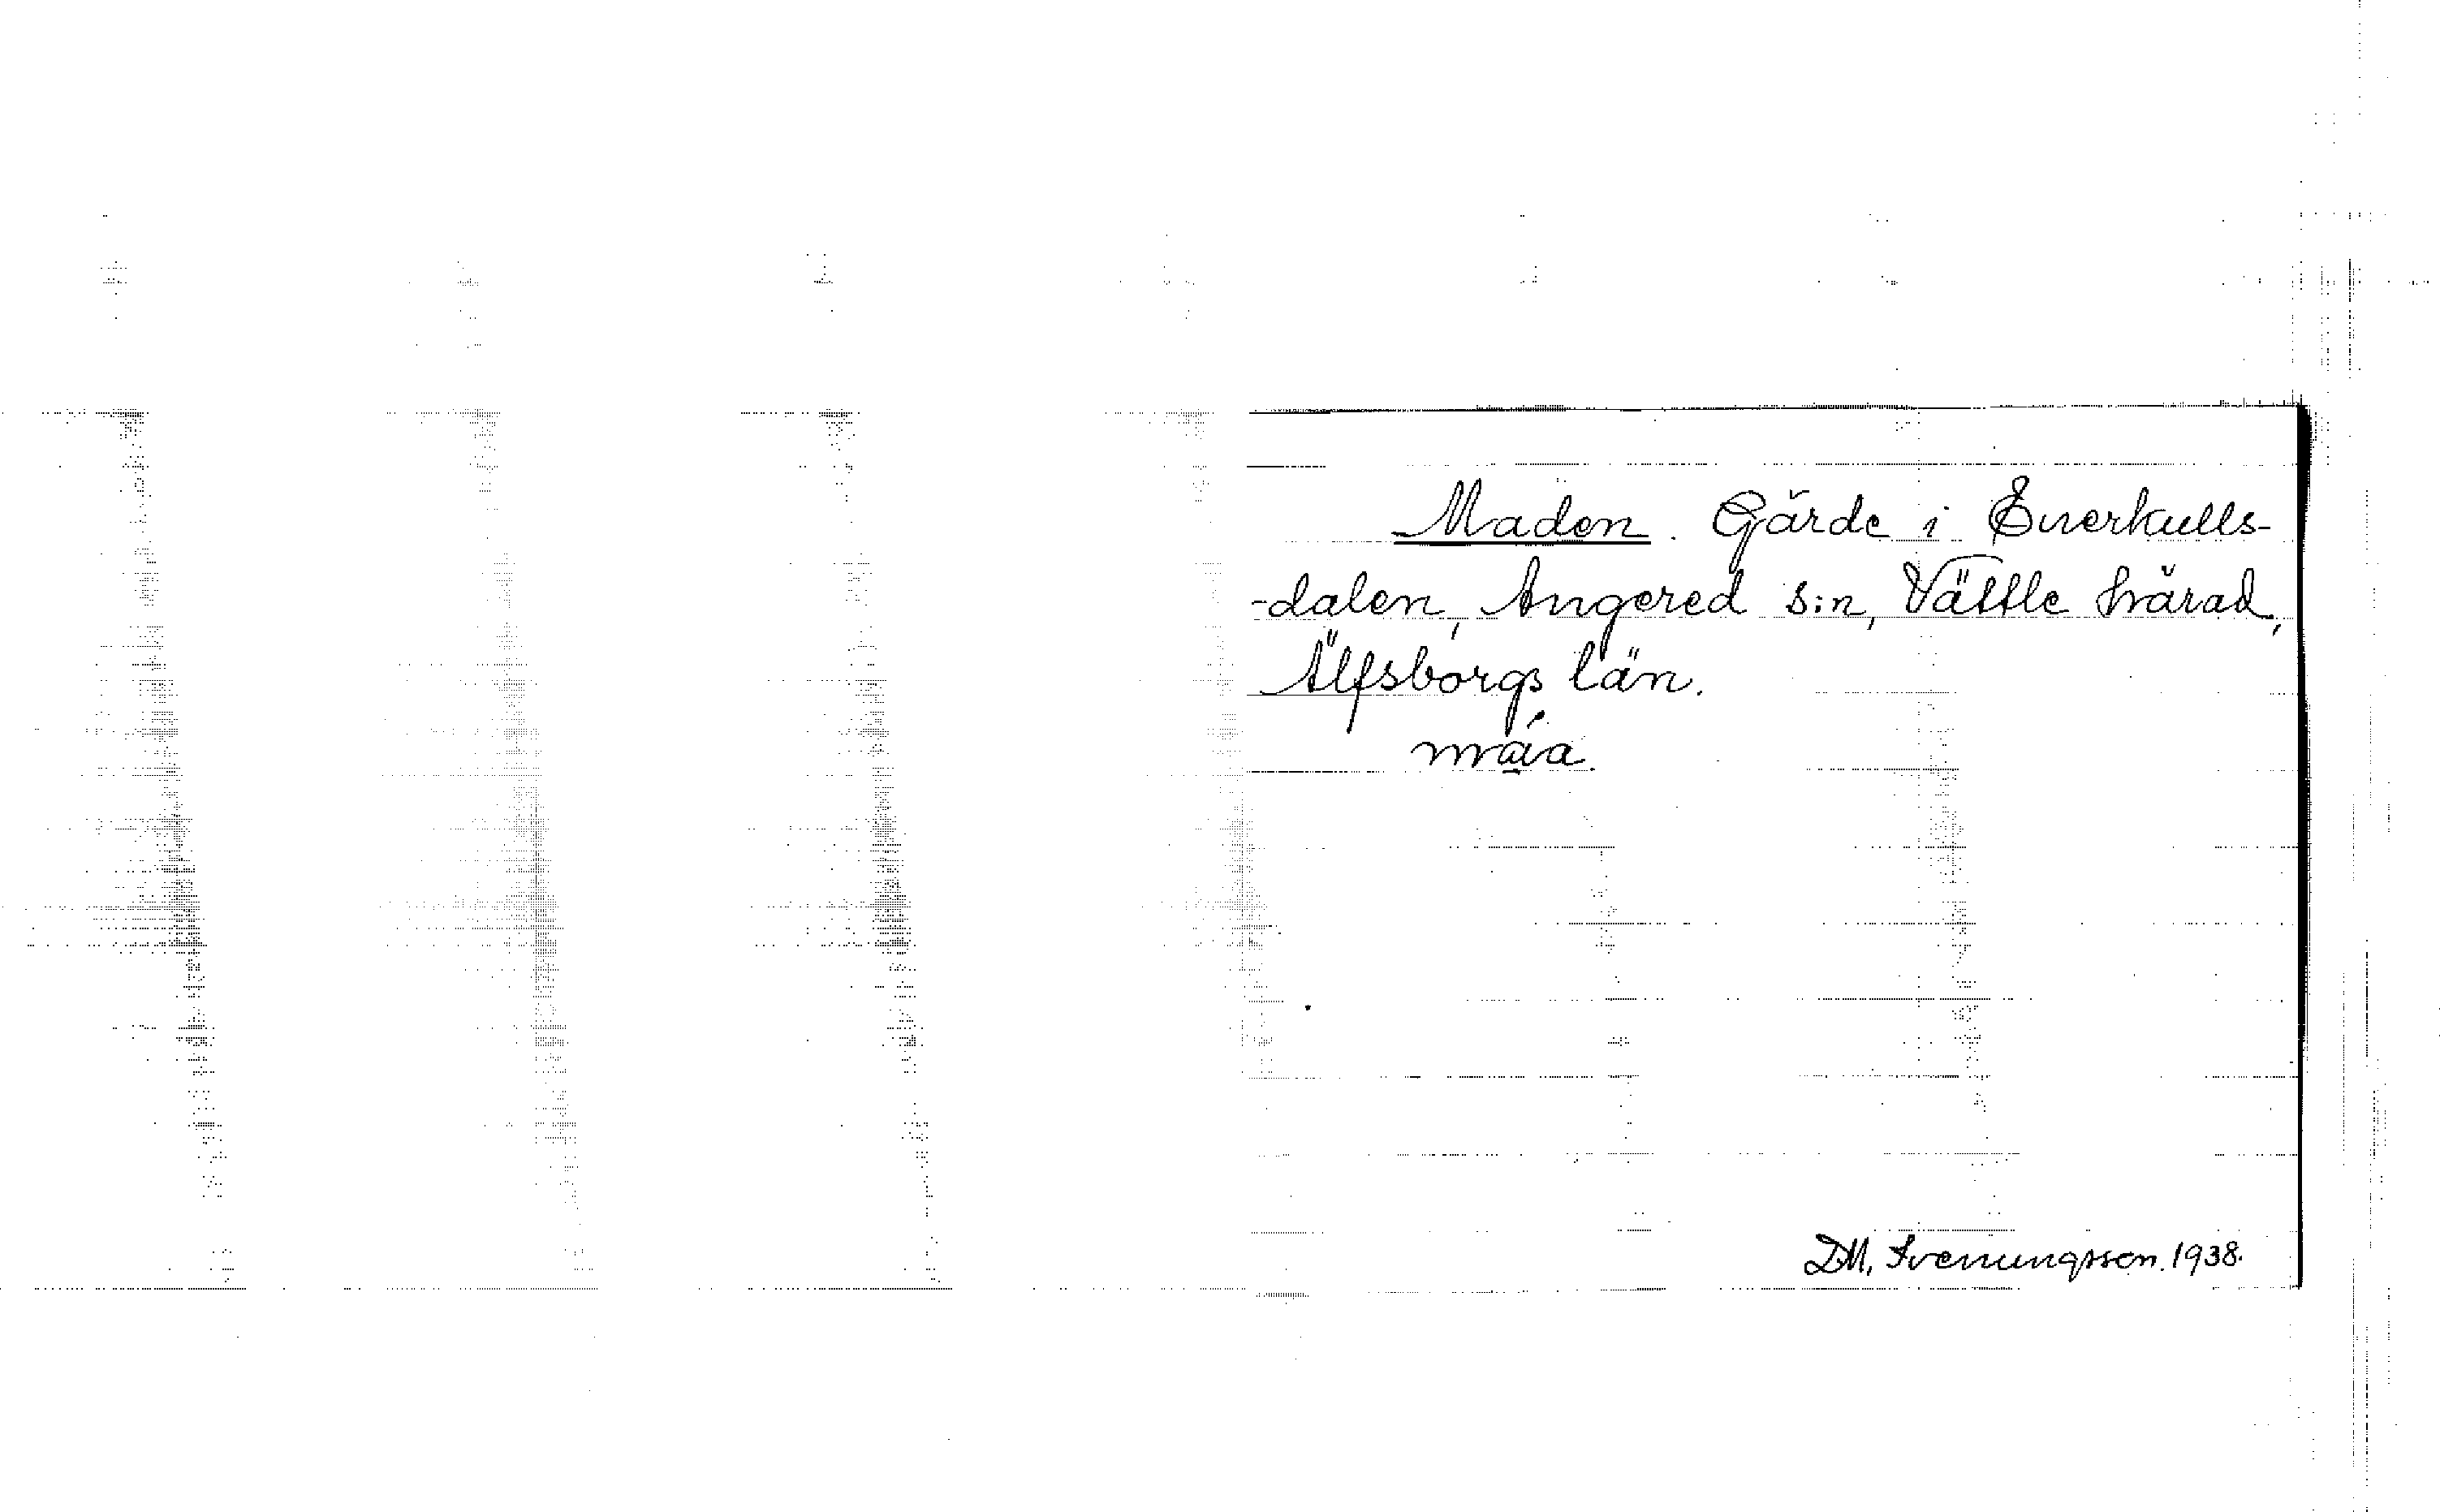 Maden. Gärde i Enerkulls-
-dalen, Angered s:n, Vättle härad,
Älfsborgs län.
D.M. Svenungsson. 1938.